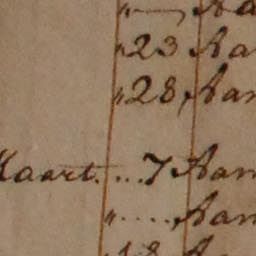 "— Aa
" 23 Aa
" 28, Aan
Maart. ... 7 Aan
" ..... Aan